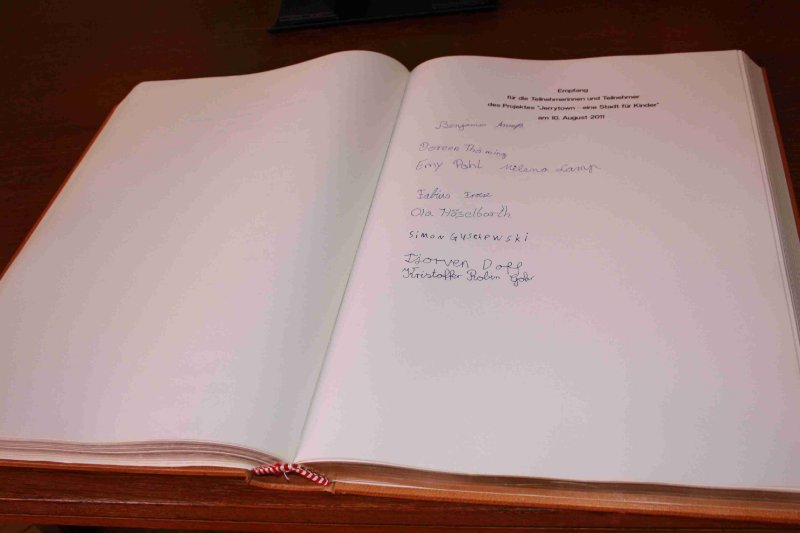 Empfang
für die Teilnehmerinnen und Teilnehmer
des Projektes "Jerrytown - eine Stadt für Kinder"
am 10. August 2011
Benjamin
Doreen Thäming
Emy Pahl Milena Lamp
Fabius
Ola Häselbarth
Simon GUSCHEWSKI
Tjorven Doll
Kristoffer Robin